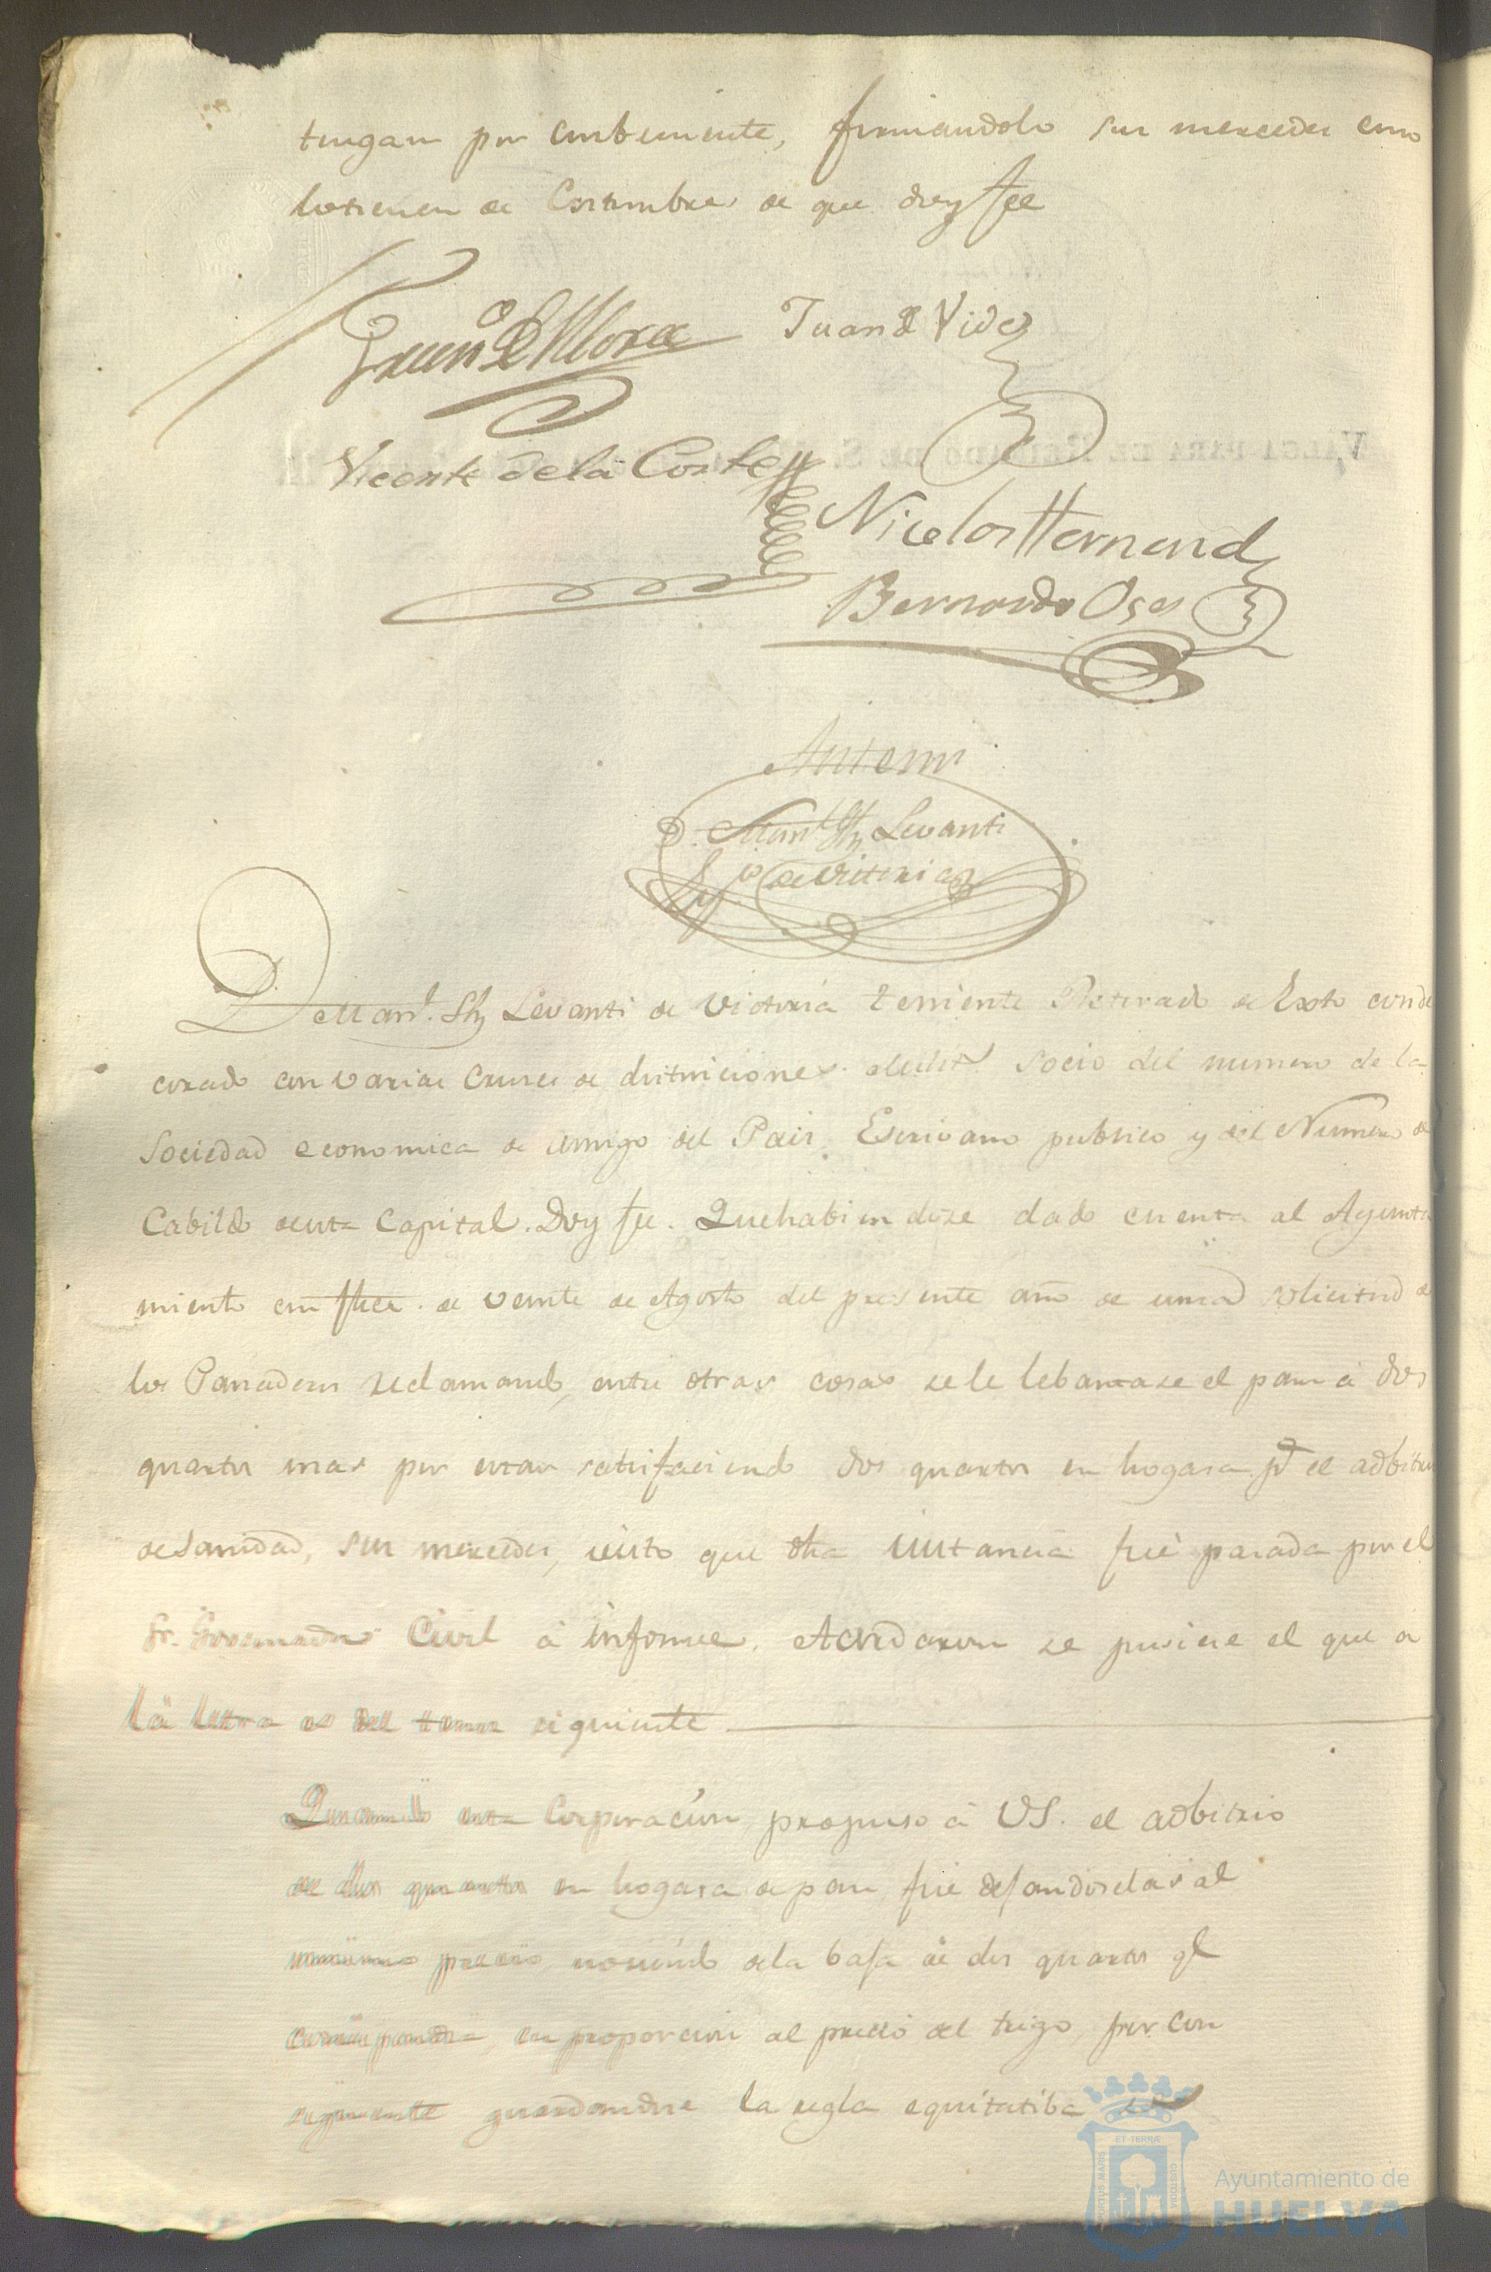 tengan por combeniente, firmandolo sus mercedes como
lo tienen de Costumbre de que doy fee
Fran.co de Mora
Juan de Vides
Vicente de la Corte
Nicolas Hernand
Bernardo Oses
Antemi
D. Man.l Levanti
de Vitoria
D. Man.l Levanti de Victoria Teniente Retirado de Exto conde
corado con varias Cruces de distinciones socio del numero de la
Sociedad economica de amigo del Pais, Escrivano publico y del Numero de
Cabildo de esta Capital. Doy fee. Que habiendose dado cuenta al Ayunta
miento en fha. de veinte de Agosto del presente año de una solicitud de
los Panaderos reclamando, entre otras cosas se le lebantase el pan à dos
quartos mas por estar satisfaciendo dos quartos en hogasa pr el adbitrio
de Sanidad, sus mercedes, visto que dha instancia fué pasada por el
Sr. Governador Civil à informe, Acordaron se pusiese el que a
la letra es del tenor siguiente
Quando esta Corporacion propuso à VS. el adbitrio
de dos quartos en hogasa de pan, fue dejandoselas al
minimo precio, de la baja de dos quartos ql
corresponde, en proporcion al precio del trigo por con
siguiente guardandose la regla equitatiba
VALGA PARA EL REINADO DE S.
ET TERRÆ
CUSTODIA
Ayuntamiento de
HUELVA